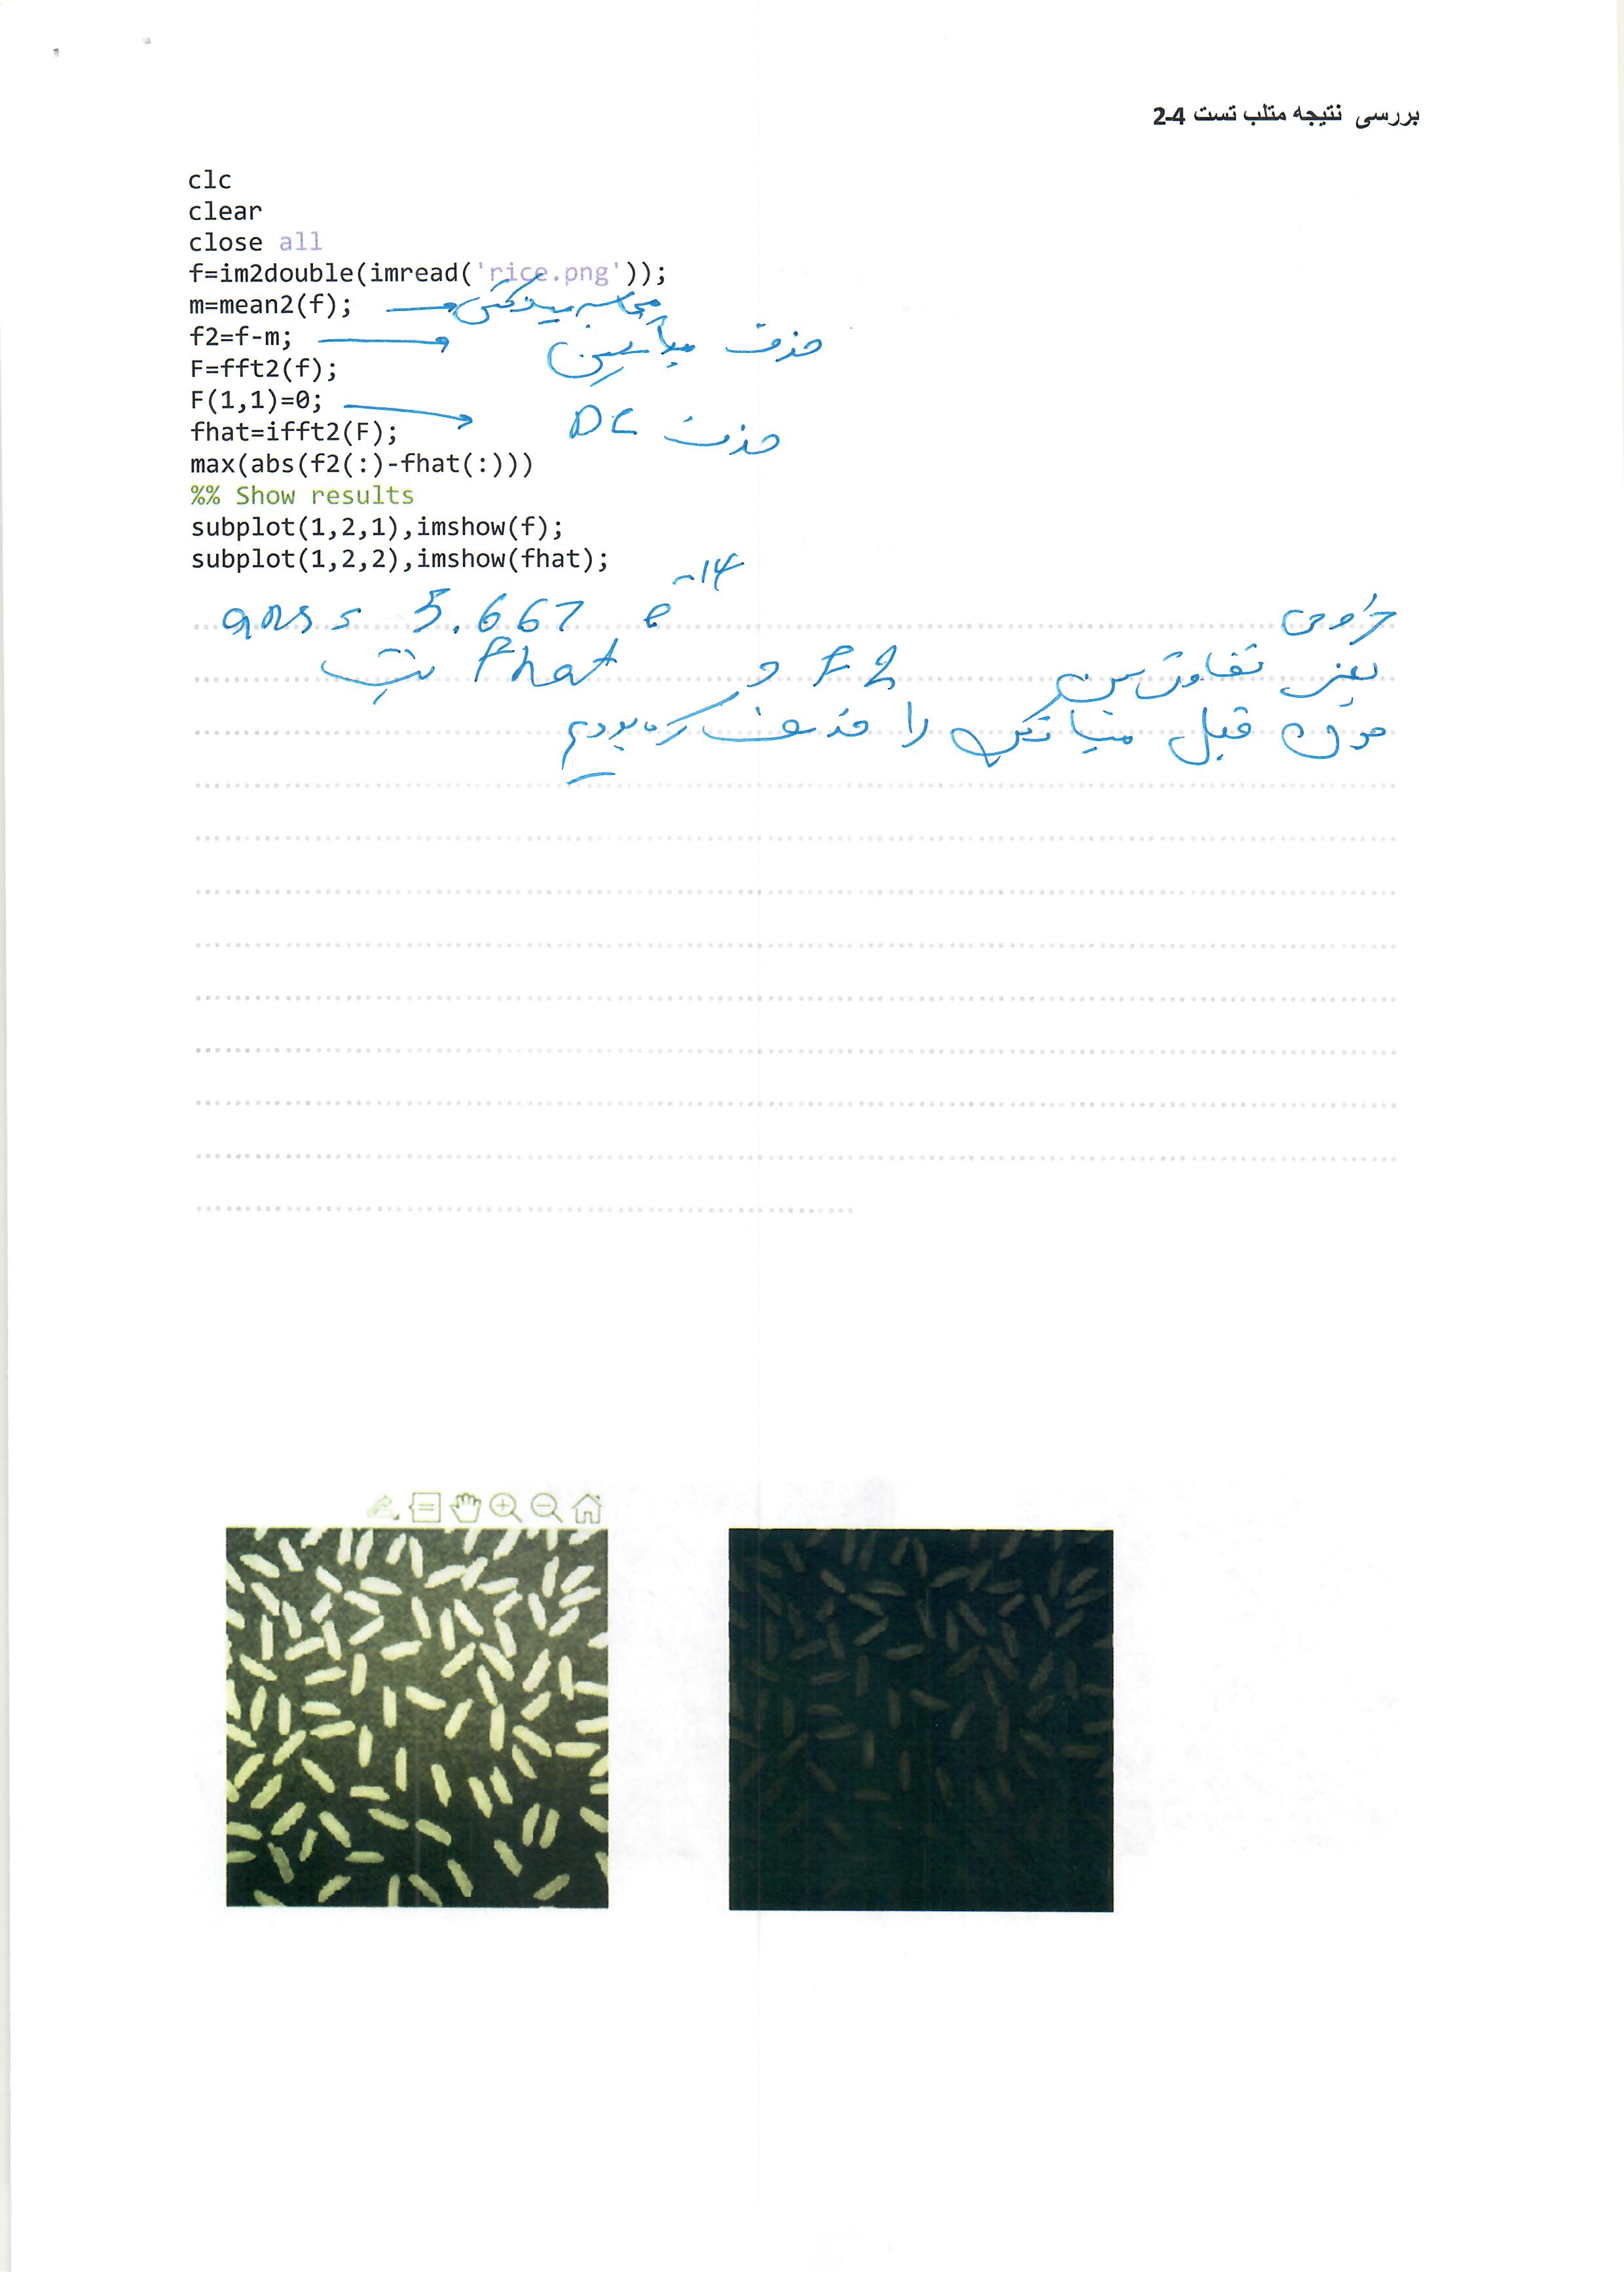 بررسی نتیجه متلب تست 4-2
clc
clear
close all
f=im2double(imread('rice.png'));
m=mean2(f); محاسبه میانگین
f2=f-m; حذف میانگین
F=fft2(f);
F(1,1)=0;
fhat=ifft2(F); حذف DC
max(abs(f2(:)-fhat(:)))
%% Show results
subplot(1,2,1),imshow(f);
subplot(1,2,2),imshow(fhat);
خروجی ans = 5.667 e^-14
یعنی تفاوت بین f2 و fhat نیست
چون قبل میانگین را حذف کرده بودیم